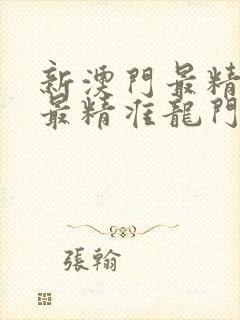 新澳門最精
最精准龍門
張翰